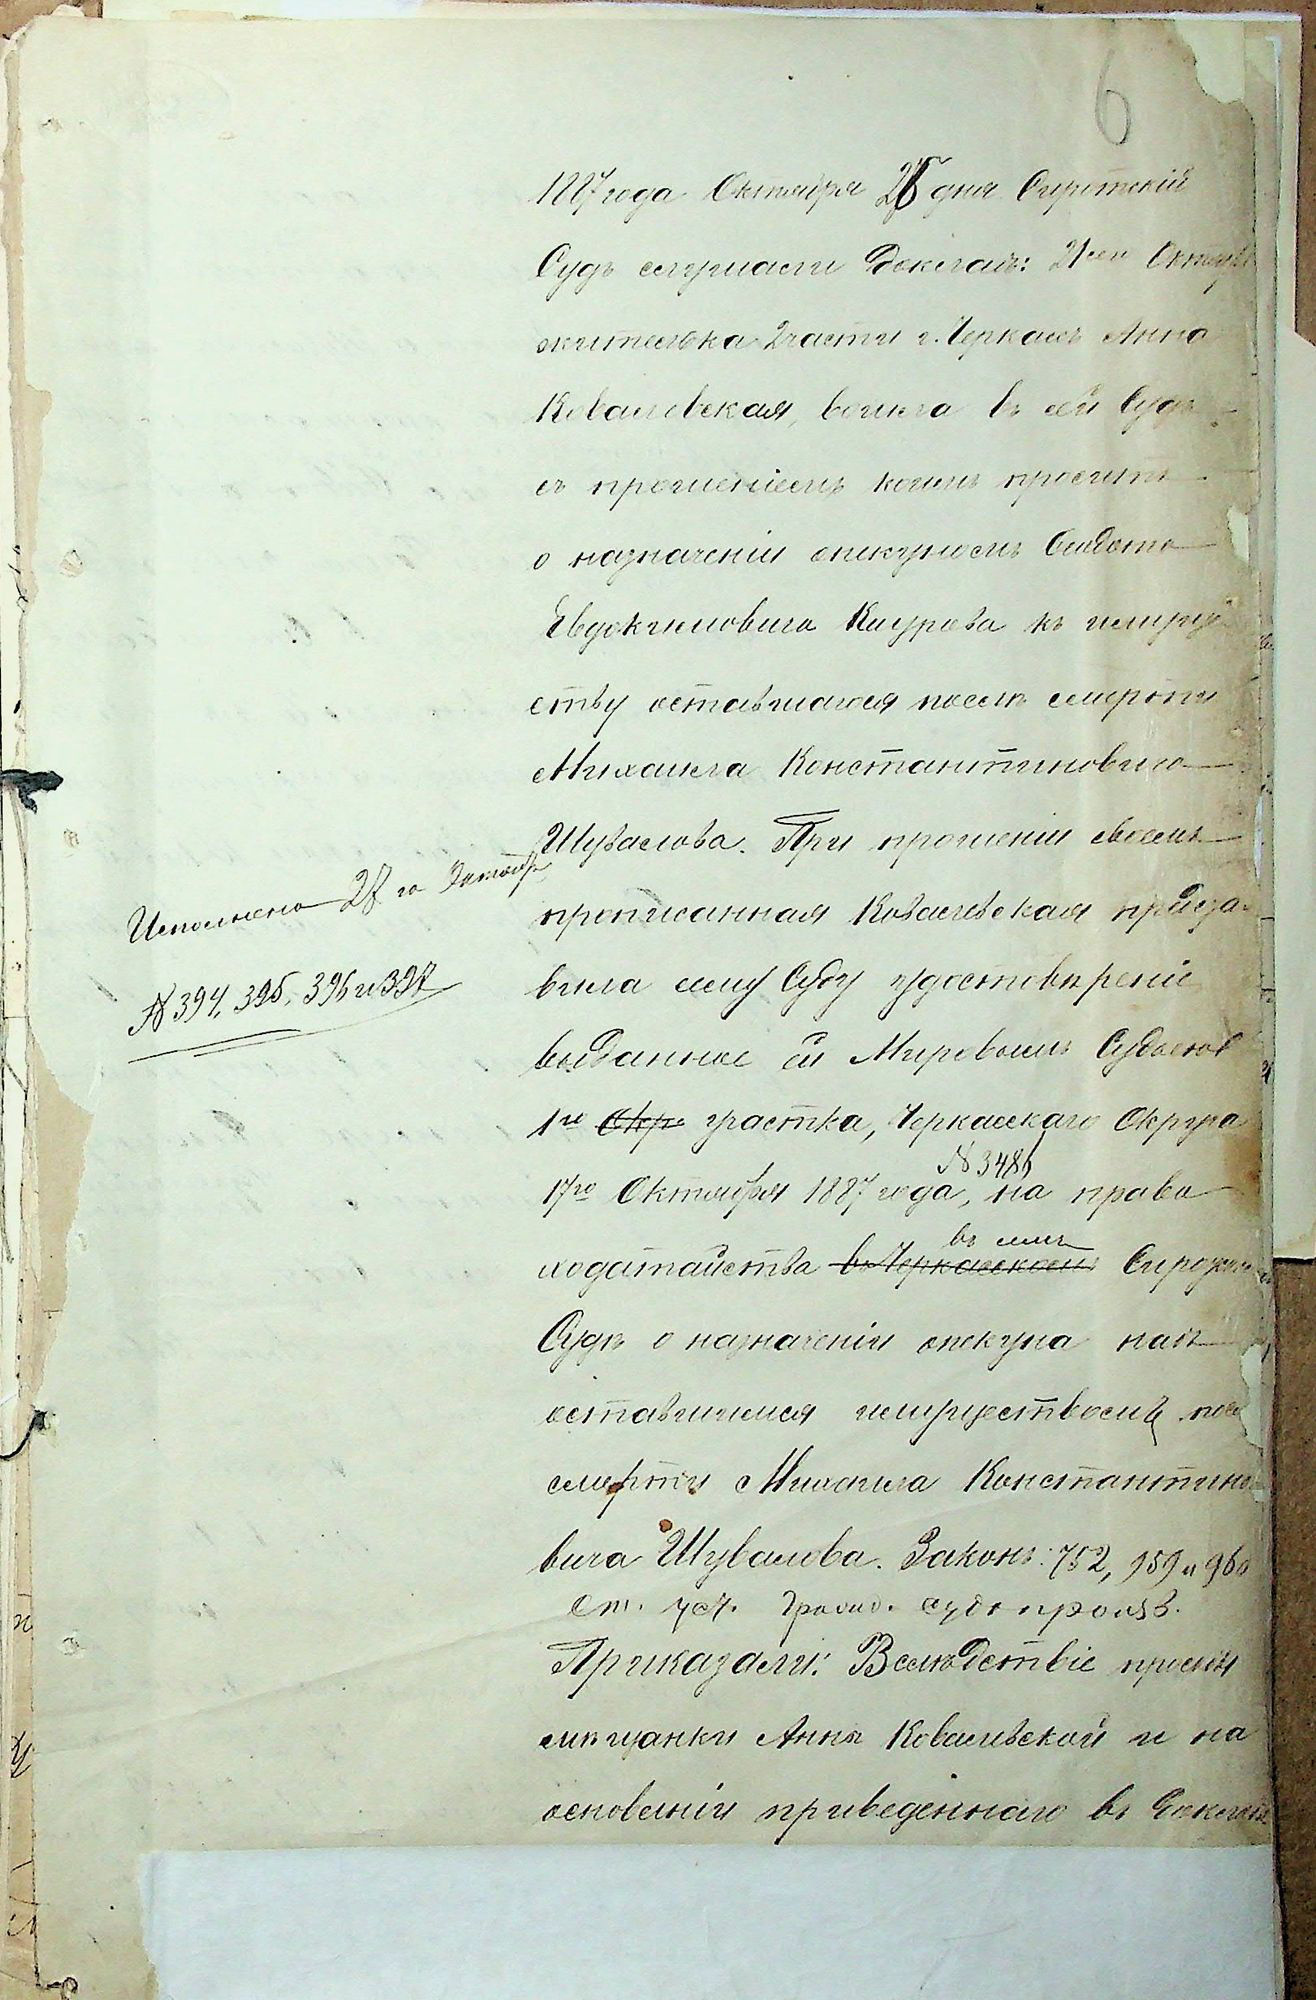 6
1887 года Октября 26 дня Сиротскій
Судъ слушали докладъ: 21го Октяб
жителька 2 части г. Черкасъ Анна
Ковалевская, вошла въ сей Судъ
съ прошеніемъ коимъ проситъ
о назначеніи опекуномъ
Евдокимовича къ имуще
ству оставшагося послѣ смерти
Михаила Константиновича
Шувалова. При прошеніи своемъ
прописанная Ковалевская предъя
вила сему Суду удостовѣреніе
выданное ей Мировымъ Судьею
1го Окр. участка, Черкасскаго Округа
№ 3486
17го Октября 1887 года, на право
въ семъ
ходатайства въ Черкасскомъ Сиротском
Судѣ о назначеніи опекуна надъ
оставшимся имуществомъ, посл
смерти Михаила Константино
вича Шувалова. Законъ: 752, 959 и 960
Ст. уст. гражд. судопроизв.
Приказали: Вслѣдствіе прозьбы
мѣщанки Анны Ковалевской и на
основаніи приведеннаго въ докладѣ
Исполнено 27 го Октябр
№ 394, 395, 396 и 397